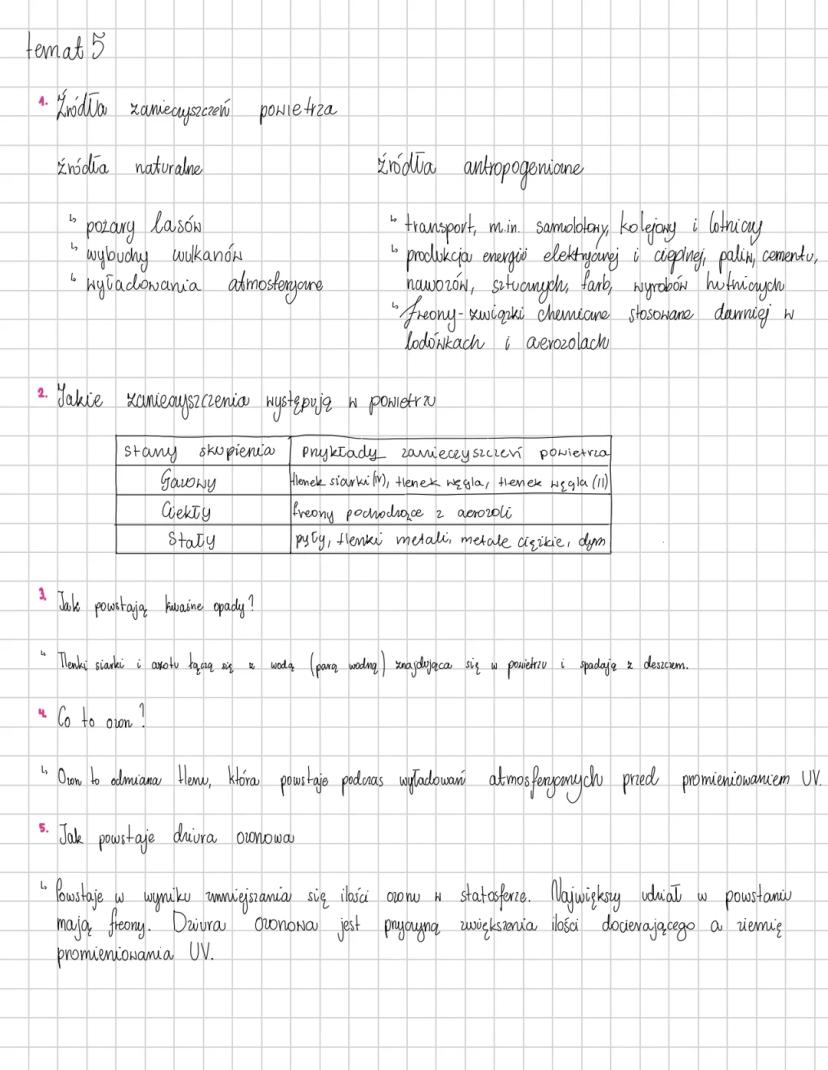 temat 5
1. Źródła zanieczyszczeń powietrza
źródła naturalne
źródła antropogeniczne
↳ pożary lasów
↳ wybuchy wulkanów
↳ wyładowania atmosferyczne
↳ transport, m.in. samolotowy, kolejowy i lotniczy
↳ produkcja energii elektrycznej i cieplnej, paliw, cementu,
nawozów, sztucznych, farb, wyrobów hutniczych
↳ freony - związki chemiczne stosowane dawniej w
lodówkach i aerozolach
2. Jakie zanieczyszczenia występują w powietrzu
stany skupienia | Przykłady zanieczyszczeń powietrza
Gazowy | tlenek siarki (IV), tlenek węgla, tlenek węgla (II)
Ciekły | freony pochodzące z aerozoli
Stały | pyły, tlenki metali, metale ciężkie, dym
3. Jak powstają kwaśne opady?
↳ Tlenki siarki i azotu łączą się z wodą (parą wodną) znajdująca się w powietrzu i spadają z deszczem.
4. Co to ozon?
↳ Ozon to odmiana tlenu, która powstaje podczas wyładowań atmosferycznych przed promieniowaniem UV.
5. Jak powstaje dziura ozonowa
↳ Powstaje w wyniku zmniejszania się ilości ozonu w statosferze. Największy udział w powstaniu
mają freony. Dziura ozonowa jest przyczyną zwiększenia ilości docierającego a ziemię
promieniowania UV.